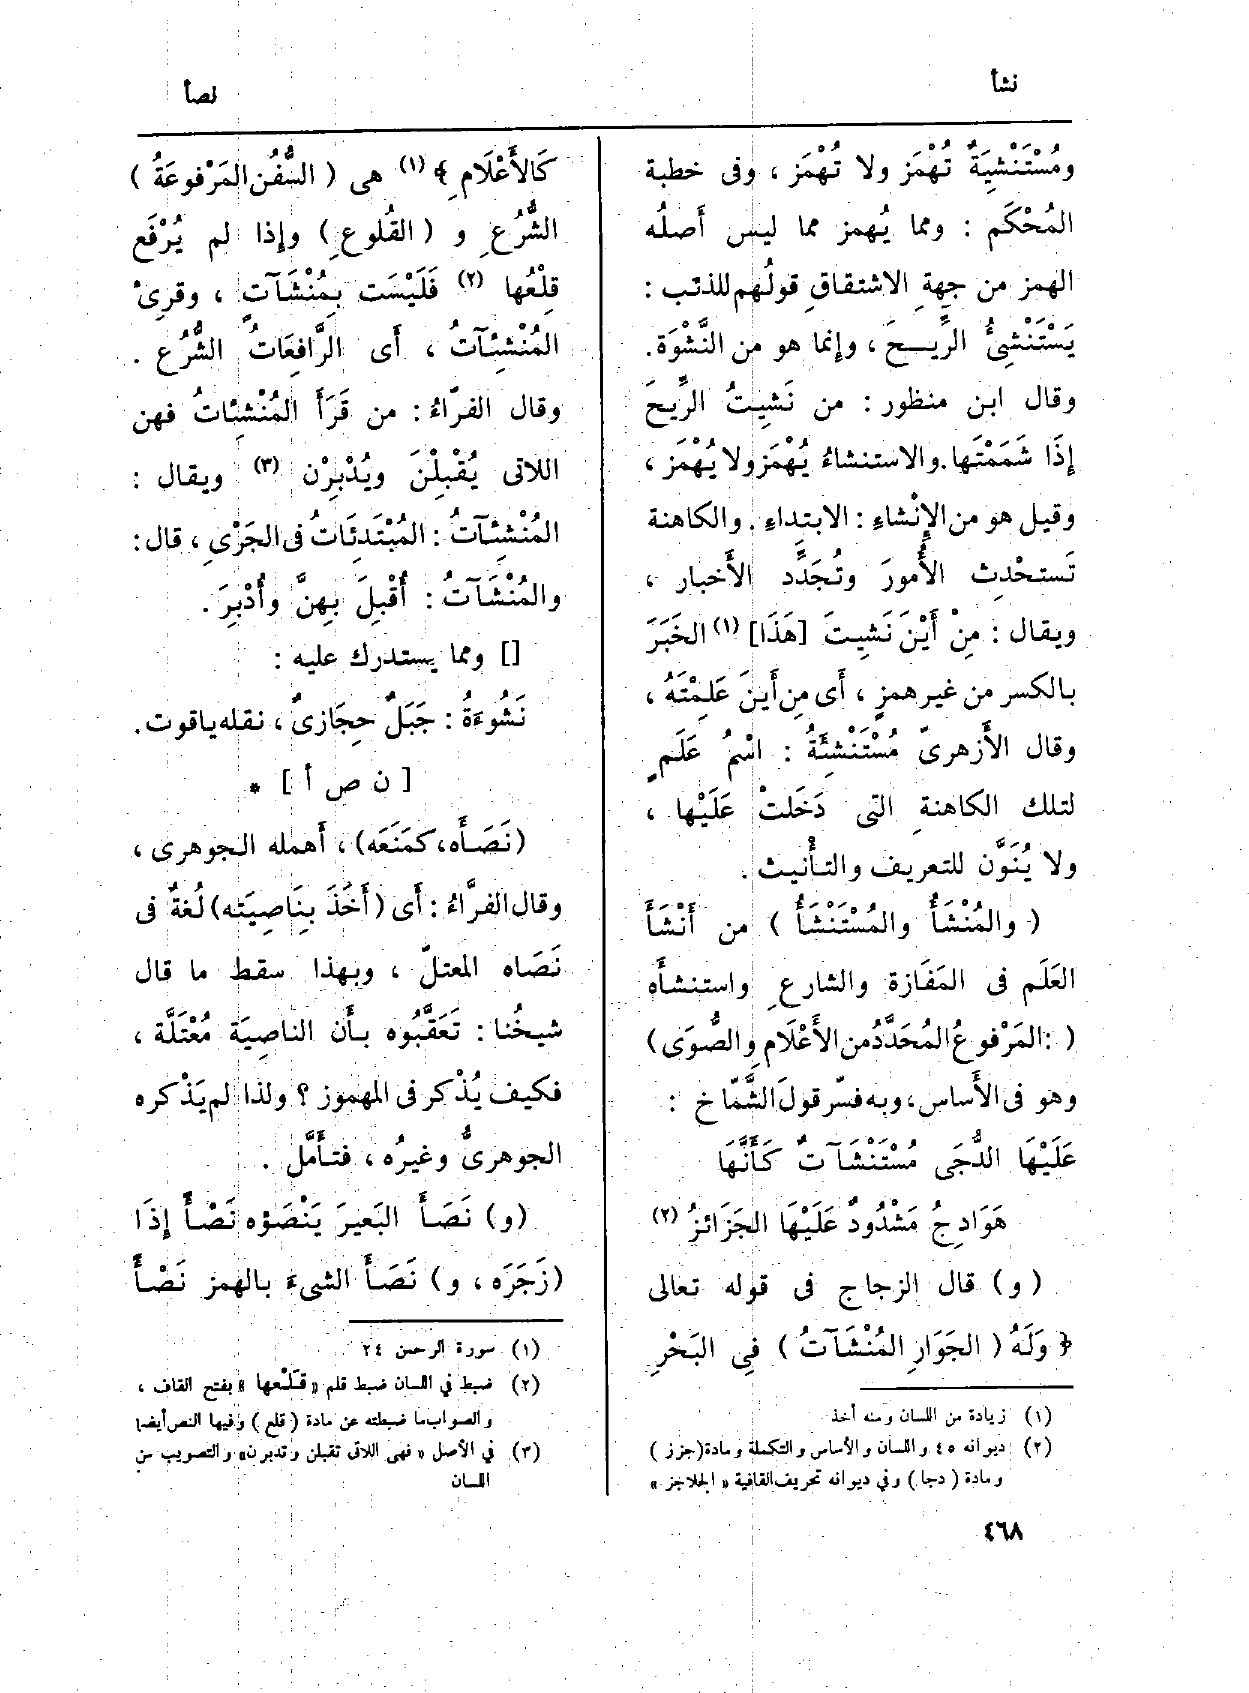 نشأ
نصأ
ومُسْتَنْشِيَةٌ تُهْمَز ولا تُهْمَز ، وفى خطبة
المُحْكَم : ومما يُهمز مما ليس أَصلُه
الهمز من جِهةِ الاشتقاقِ قولُهم للذئب :
يَسْتَنْشِئُ الرِّيــحَ ، وإنما هو من النَّشْوَة .
وقال ابن منظور : من نَشِيتُ الرِّيحَ
إِذَا شَمَمْتَها . والاستنشاءُ يُهْمَز ولا يُهْمَز ،
وقيل هو من الإِنْشاءِ : الابتداءِ . والكاهنة
تَستحْدِث الأُمورَ وتُجَدِّد الأَخبار ،
ويقال : مِنْ أَيْنَ نَشِيتَ [هَذَا] (١) الخَبَرَ
بالكسر من غير همزٍ ، أَى مِن أَينَ عَلِمْتَهُ ،
وقال الأَزهرىّ مُسْتَنْشِئَةُ : اسْمُ عَلَمٍ
لتلك الكاهنةِ التى دَخَلتْ عَلَيْها ،
ولا يُنَوَّن للتعريف والتأْنيث .
( والمُنْشَأُ والمُسْتَنْشَأُ ) من أَنْشَأَ
العَلَم فى المَفَازة والشارعِ واستنشأَه
( : المَرْفوعُ المُحَدَّدُ من الأَعْلَامِ والصُّوَى )
وهو فى الأَساس ، وبه فسّر قولَ الشَّمّاخِ :
عَلَيْهَا الدُّجَى مُسْتَنْشَآتٌ كَأَنَّهَا
هَوَادِجُ مَشْدُودٌ عَلَيْهَا الجَزَائزُ (٢)
( و ) قال الزجاج فى قوله تعالى
﴿ وَلَهُ ( الجَوَارِ المُنْشَآتُ ) فِى البَحْرِ
(١) زيادة من اللسان ومنه أخذ
(٢) ديوانه ٤٥ واللسان والأساس والتكملة ومادة ( جزز )
ومادة ( دجا ) وفي ديوانه تحريف القافية « الجلاجز »
كَالأَعْلَامِ ﴾ (١) هى ( السُّفُن المَرْفوعَةُ )
الشُّرُعِ و ( القُلوعِ ) وإِذا لم يُرْفَع
قِلْعُها (٢) فَلَيْسَت بِمُنْشَآتٍ ، وقرِئْ
المُنْشِئآتُ ، أَى الرَّافِعَاتُ الشُّرُع .
وقال الفرّاءُ : من قَرَأَ المُنْشِئاتُ فهن
اللاتى يُقْبِلْنَ ويُدْبِرْن (٣) ويقال :
المُنْشِئآتُ : المُبْتَدِئاتُ فى الجَرْىِ ، قال :
والمُنْشَآتُ : أُقْبِلَ بِهِنَّ وأُدْبِرَ .
[] ومما يستدرك عليه :
نَشُوءَةُ : جَبَلٌ حِجَازىٌّ ، نقله ياقوت .
[ ن ص أ ] *
( نَصَأَه ، كمَنَعَه ) ، أَهمله الجوهرى ،
وقال الفرَّاءُ : أَى ( أَخَذَ بِنَاصِيَته ) لُغةٌ فى
نَصَاه المعتلّ ، وبهذا سقط ما قال
شيخُنا : تَعَقَّبُوه بأَن الناصِيَة مُعْتَلَّة ،
فكيف يُذْكر فى المهموز ؟ ولذا لم يَذْكره
الجوهرىُّ وغيرُه ، فتأَمَّل .
( و ) نَصَأَ البَعيرَ يَنْصَؤه نَصْأً إِذَا
( زَجَرَه ، و ) نَصَأَ الشىءَ بالهمز نَصْأً
(١) سورة الرحمن ٢٤
(٢) ضبط في اللسان ضبط قلم « قَلْعها » بفتح القاف ،
والصواب ما ضبطته عن مادة ( قلع ) وفيها النص أيضا
(٣) في الأصل « فهى اللاتى تقبلن وتدبرن » والتصويب من
اللسان
٤٦٨